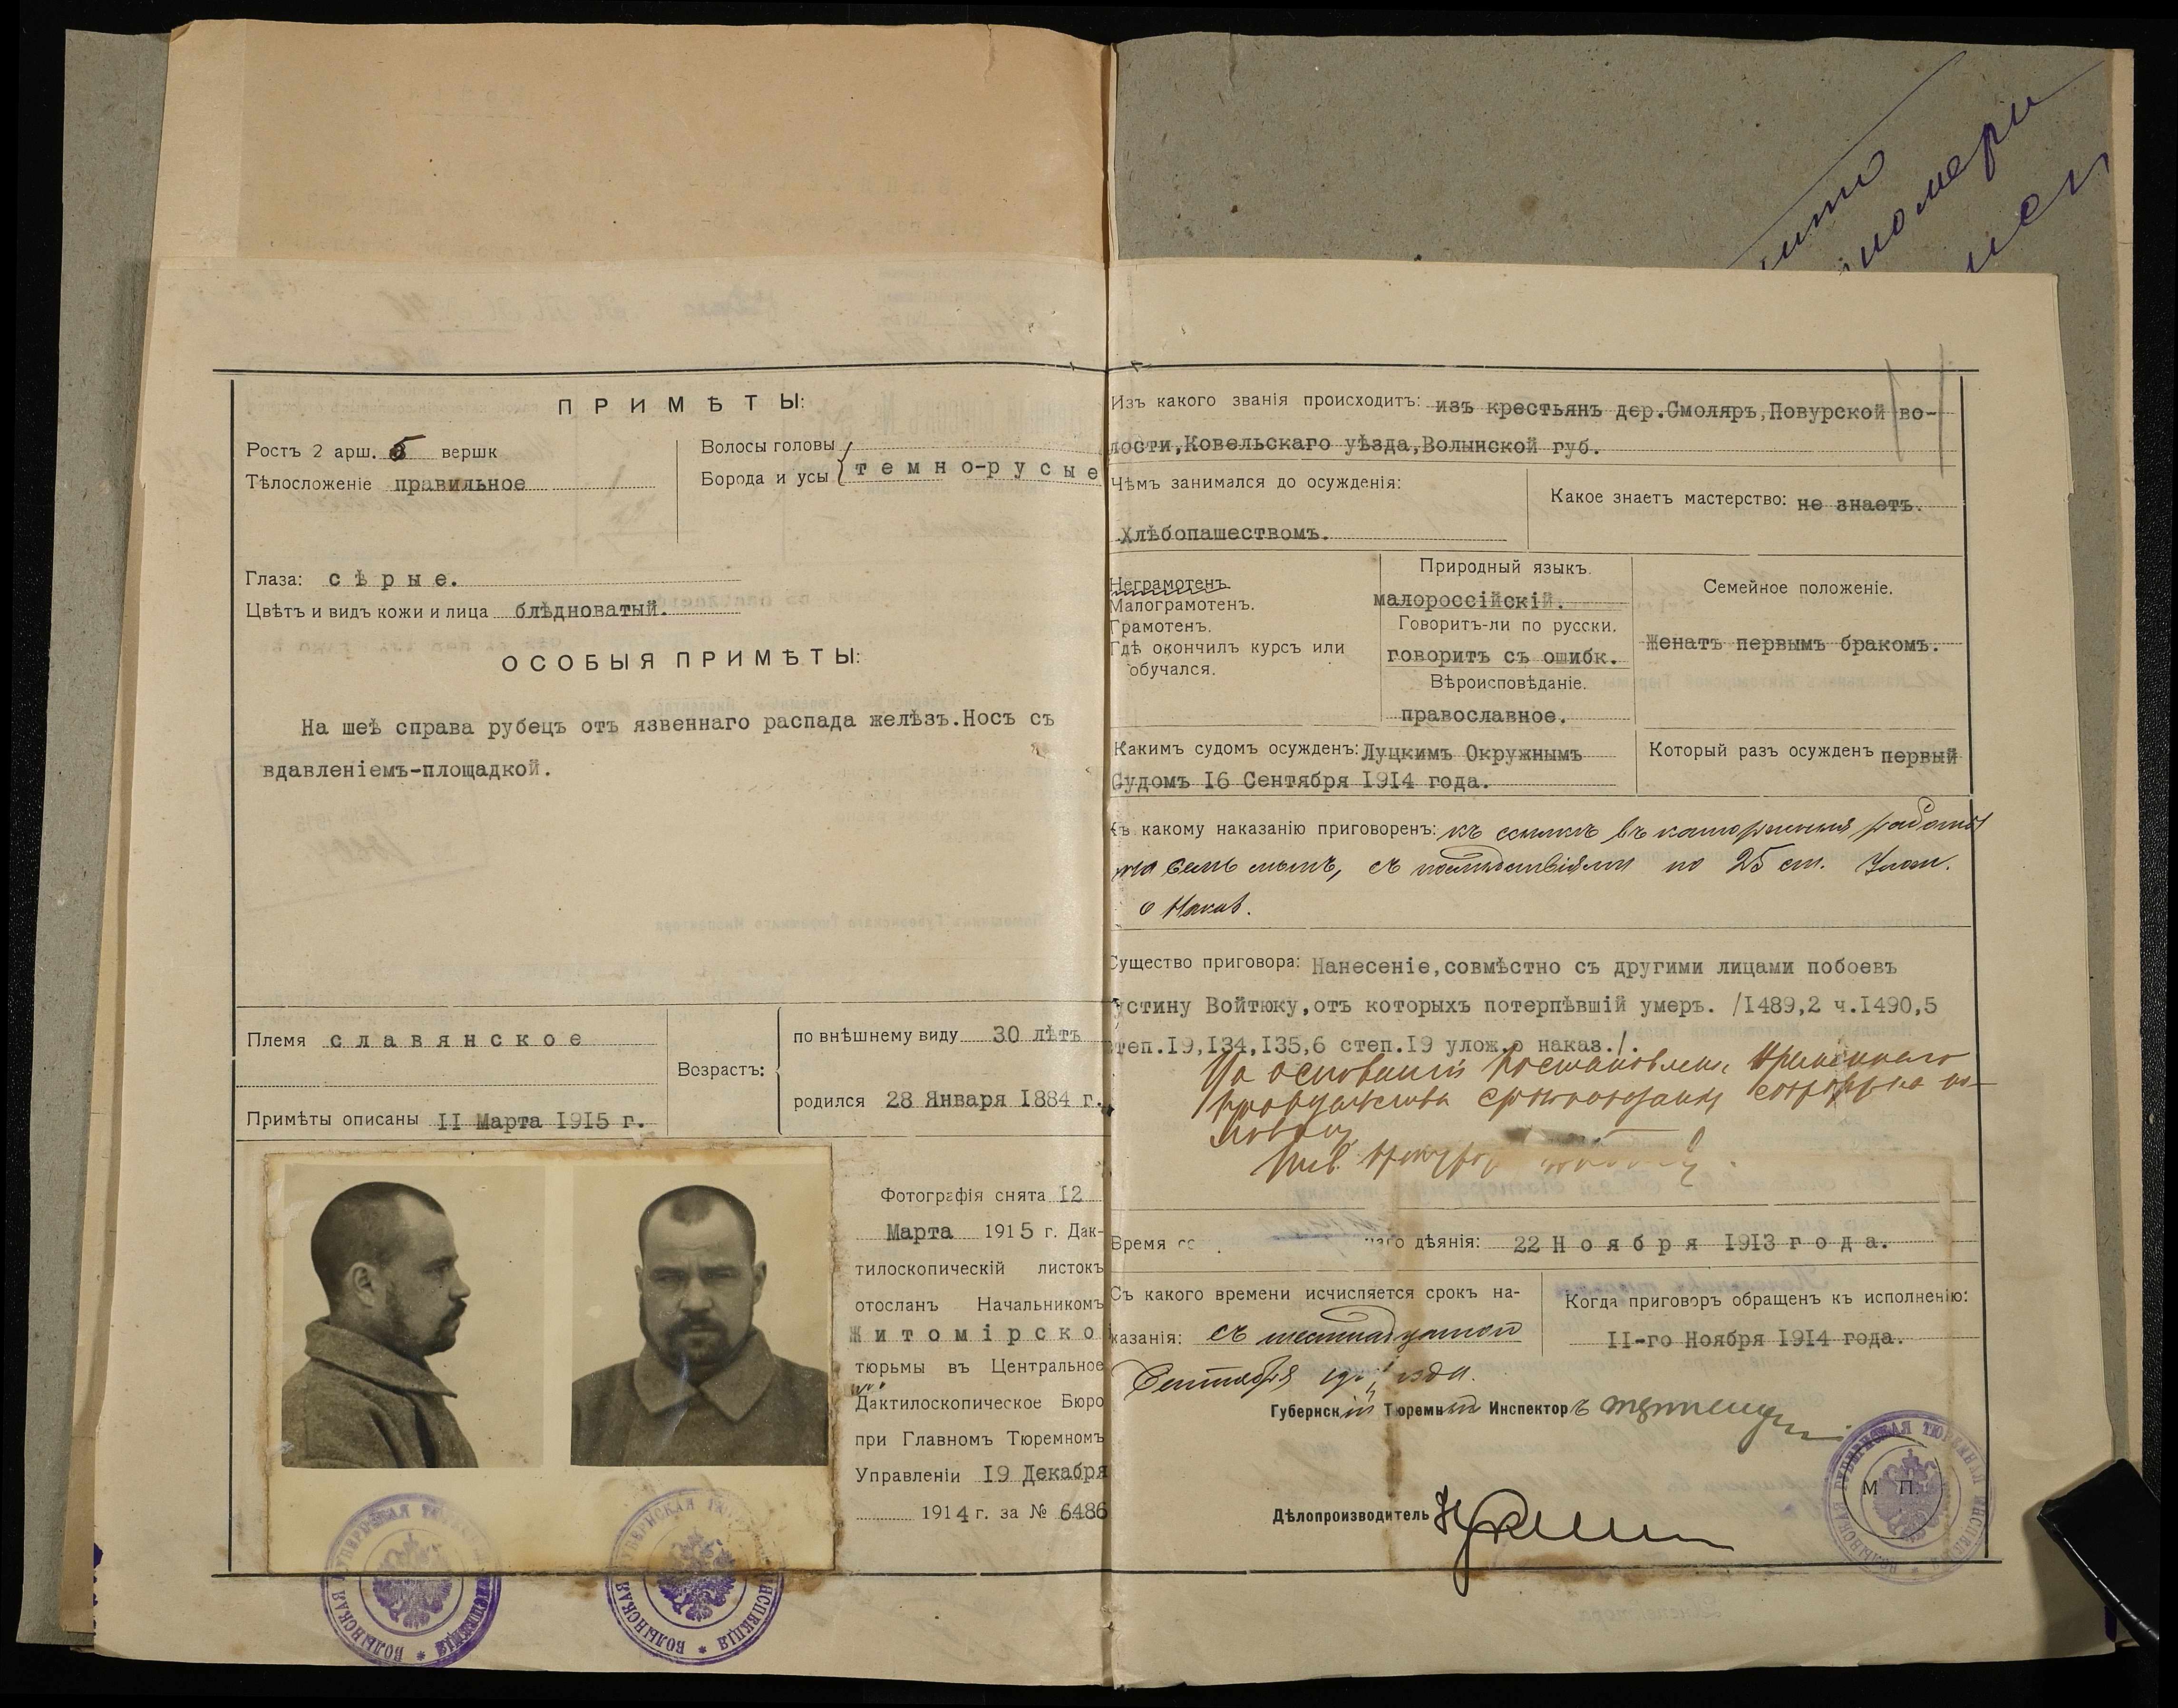 ПРИМѢТЫ:
Ростъ 2 арш. 5 вершк
Тѣлосложеніе правильное
Волосы головы
Борода и усы темно-русые
Глаза: сѣрые.
Цвѣтъ и видъ кожи и лица блѣдноватый.
ОСОБЫЯ ПРИМѢТЫ:
На шеѣ справа рубецъ отъ язвеннаго распада желѣзъ.Носъ съ
вдавленіемъ-площадкой.
Племя славянское
Примѣты описаны II Марта 1915 г.
Возрастъ:
по внѣшнему виду 30 лѣтъ
родился 28 Января 1884 г.
Фотографія снята 12
Марта 1915 г. Дак-
тилоскопическій листокъ
отосланъ Начальникомъ
Житомірско
тюрьмы въ Центральное
Дактилоскопическое Бюро
при Главномъ Тюремномъ
Управленіи 19 Декабря
1914 г. за № 6486
Изъ какого званія происходитъ: изъ крестьянъ дер.Смоляръ,Повурской во-
лости,Ковельскаго уѣзда,Волынской губ.
Чѣмъ занимался до осужденія:
Хлѣбопашествомъ.
Какое знаетъ мастерство: не знаетъ.
Неграмотенъ.
Малограмотенъ.
Грамотенъ.
Гдѣ окончилъ курсъ или
обучался.
Природный языкъ.
малороссійскій.
Говоритъ-ли по русски.
говоритъ съ ошибк.
Вѣроисповѣданіе.
православное.
Семейное положеніе.
Женатъ первымъ бракомъ.
Какимъ судомъ осужденъ: Луцкимъ Окружнымъ
Судомъ 16 Сентября 1914 года.
Который разъ осужденъ первый
Къ какому наказанію приговоренъ: къ ссылкѣ въ каторжныя работы
на семь лѣтъ, съ послѣдствіями по 25 ст. Улож.
о Наказ.
Существо приговора: Нанесеніе,совмѣстно съ другими лицами побоевъ
устину Войтюку,отъ которыхъ потерпѣвшій умеръ. /1489,2 ч.1490,5
степ.19,134,135,6 степ.19 улож.о наказ./.
На основаніи Постановлен. Временнаго
Правительства
Время го дѣянія: 22 Ноября 1913 года.
Съ какого времени исчисляется срокъ на-
казанія: съ шестнадцатого
Сентября 1914 года.
Когда приговоръ обращенъ къ исполненію:
II-го Ноября 1914 года.
Губернскій Тюремный Инспекторъ
М П.
Дѣлопроизводитель
ВОЛЫНСКАЯ ГУБЕРНСКАЯ ТЮРЕМНАЯ ИНСПЕКЦІЯ
ВОЛЫНСКАЯ ГУБЕРНСКАЯ ТЮРЕМНАЯ ИНСПЕКЦІЯ
ВОЛЫНСКАЯ ГУБЕРНСКАЯ ТЮРЕМНАЯ ИНСПЕКЦІЯ